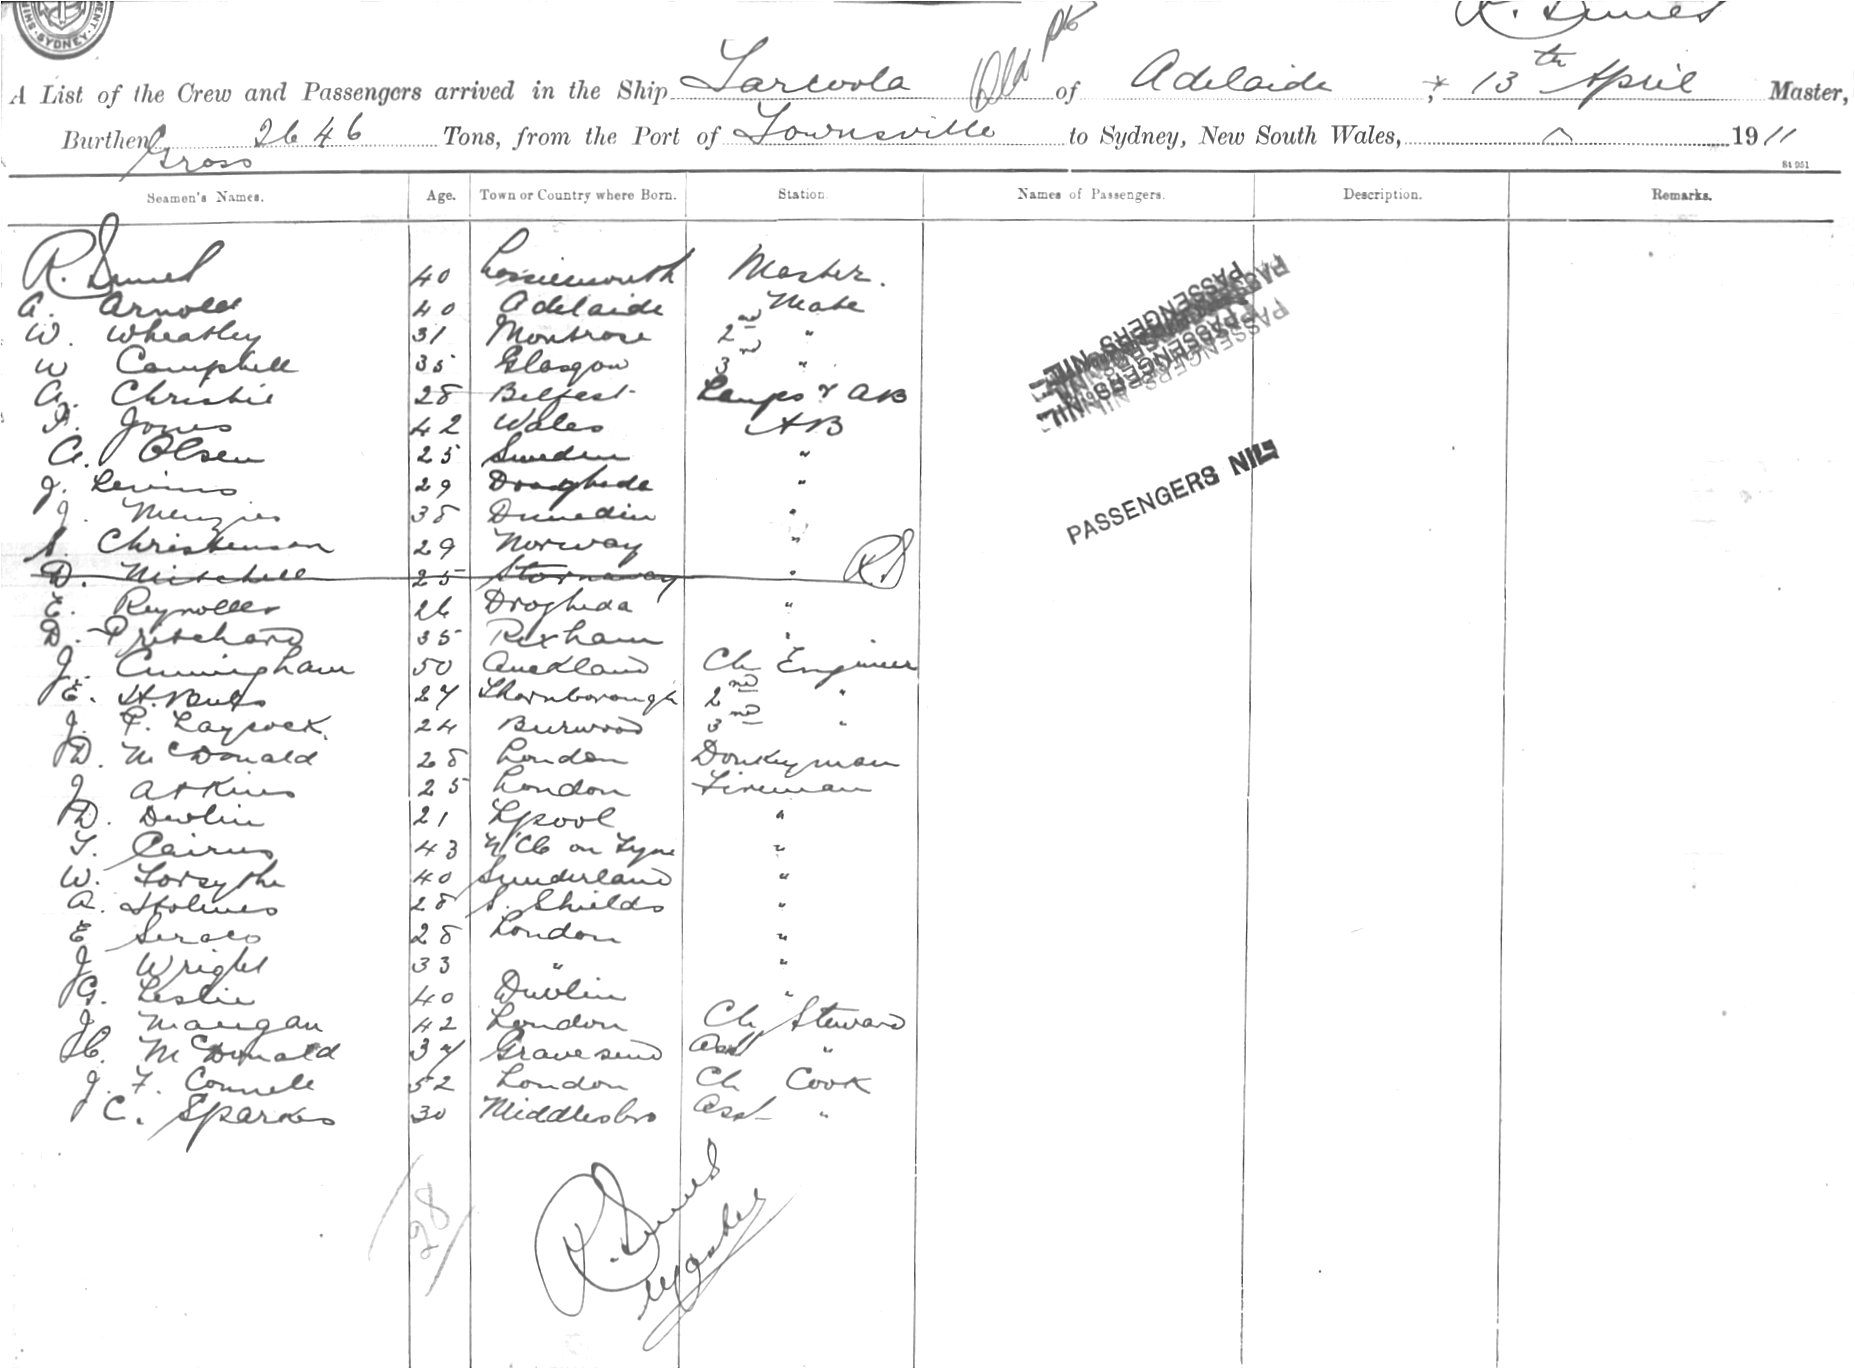 SYDNEY
A List of the Crew and Passengers arrived in the Ship Tarcoola of Adelaide, 13th April Master,
Burthen Gross 2646 Tons, from the Port of Townsville to Sydney, New South Wales, 1911
84 951
Seamen's Names. Age. Town or Country where Born. Station. Names of Passengers. Description. Remarks.
R. 40 Lossiemouth Master.
A. Arnold 40 Adelaide Mate
W. Wheatley 31 Montrose 2nd "
W Campbell 35 Glasgow 3rd "
A. Christie 28 Belfast Lamps & AB
Jones 42 Wales AB
A. Olsen 25 Sweden "
J. 29 Drogheda "
J. Menzies 38 Dunedin "
S. Christenson 29 Norway "
D. Mitchell 25 Stornaway " RS
E. Reynolds 26 Drogheda "
D. Pritchard 35 Rexham "
J. Cunningham 50 Auckland Ch Engineer
E. H. 27 Thornborough 2nd "
J. P. Laycock. 24 Burwood 3rd "
D. McDonald 28 London Donkeyman
J Atkins 25 London Fireman
D. Devlin 21 Lpool "
T. Cairns 43 N'Cle on Tyne "
W. Forsythe 40 Sunderland "
A. Holmes 28 S. Shields "
E 28 London "
J Wright 33 " "
G. Leslie 40 Dublin "
J Mangan 42 London Ch Steward
H. McDonald 37 Gravesend Asst "
J. F. Connell 52 London Ch Cook
C. Sparkes 30 Middlesbro Asst "
PASSENGERS NIL
PASSENGERS NIL
PASSENGERS NIL
28
R.
Master